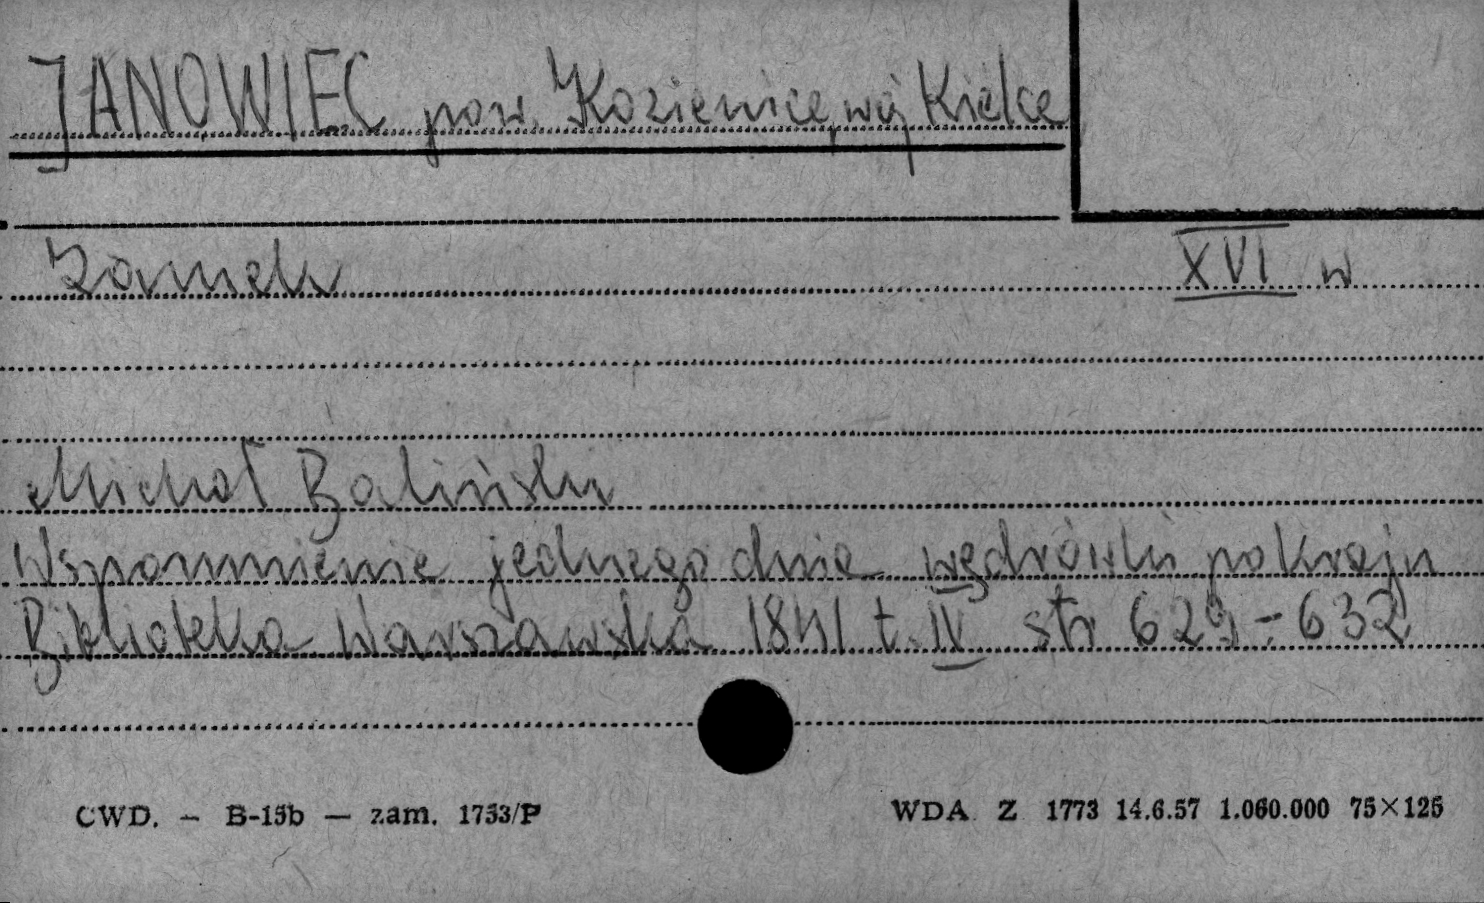 JANOWIEC pow. Kozienice, woj Kielce
Zamek XVI w
Michał Baliński
Wspomnienie jednego dnia wędrówki po kraju
Biblioteka Warszawska 1841 t. IV str 629-632
CWD. — B-15b — zam. 1753/P
WDA Z 1773 14.6.57 1.060.000 75×125